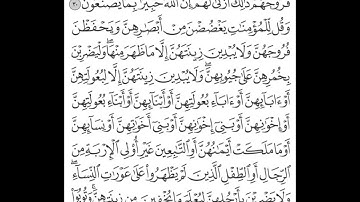 فُرُوجَهُمْ ذَٰلِكَ أَزْكَىٰ لَهُمْ إِنَّ ٱللَّهَ خَبِيرٌۢ بِمَا يَصْنَعُونَ ٣٠
وَقُل لِّلْمُؤْمِنَٰتِ يَغْضُضْنَ مِنْ أَبْصَٰرِهِنَّ وَيَحْفَظْنَ
فُرُوجَهُنَّ وَلَا يُبْدِينَ زِينَتَهُنَّ إِلَّا مَا ظَهَرَ مِنْهَا ۖ وَلْيَضْرِبْنَ
بِخُمُرِهِنَّ عَلَىٰ جُيُوبِهِنَّ ۖ وَلَا يُبْدِينَ زِينَتَهُنَّ إِلَّا لِبُعُولَتِهِنَّ
أَوْ ءَابَآئِهِنَّ أَوْ ءَابَآءِ بُعُولَتِهِنَّ أَوْ أَبْنَآئِهِنَّ أَوْ أَبْنَآءِ بُعُولَتِهِنَّ
أَوْ إِخْوَٰنِهِنَّ أَوْ بَنِىٓ إِخْوَٰنِهِنَّ أَوْ بَنِىٓ أَخَوَٰتِهِنَّ أَوْ نِسَآئِهِنَّ
أَوْ مَا مَلَكَتْ أَيْمَٰنُهُنَّ أَوِ ٱلتَّٰبِعِينَ غَيْرِ أُو۟لِى ٱلْإِرْبَةِ مِنَ
ٱلرِّجَالِ أَوِ ٱلطِّفْلِ ٱلَّذِينَ لَمْ يَظْهَرُوا۟ عَلَىٰ عَوْرَٰتِ ٱلنِّسَآءِ ۖ
وَلَا يَضْرِبْنَ بِأَرْجُلِهِنَّ لِيُعْلَمَ مَا يُخْفِينَ مِن زِينَتِهِنَّ ۚ وَتُوبُوٓا۟